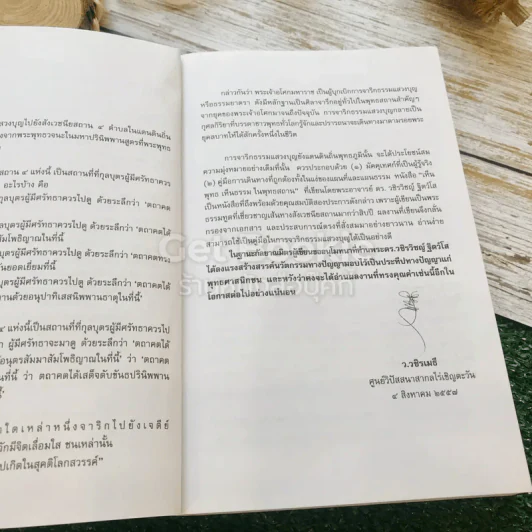 สวงบุญไปยังสังเวชนียสถาน ๔ ตำบลในแดนดินถิ่น
จากพระพุทธวจนะในมหาปรินิพพานสูตรที่พระพุทธ
สถาน ๔ แห่งนี้ เป็นสถานที่ที่กุลบุตรผู้มีศรัทธาควร
อะไรบ้าง คือ
บุตรผู้มีศรัทธาควรไปดู ด้วยระลึกว่า 'ตถาคต
บุตรผู้มีศรัทธาควรไปดู ด้วยระลึกว่า 'ตถาคตได้
มาสัมโพธิญาณในที่นี้'
บุตรผู้มีศรัทธาควรไปดู ด้วยระลึกว่า 'ตถาคตได้
ยอดเยี่ยมที่นี้'
บุตรผู้มีศรัทธาควรไปดู ด้วยระลึกว่า 'ตถาคตได้
ด้วยอนุปาทิเสสนิพพานธาตุในที่นี้'
๔ แห่งนี้เป็นสถานที่ที่กุลบุตรผู้มีศรัทธาควรไป
ผู้มีศรัทธาจะมาดู ด้วยระลึกว่า 'ตถาคตได้
อนุตรสัมมาสัมโพธิญาณในที่นี้' ว่า 'ตถาคต
ในที่นี้' ว่า ตถาคตได้เสด็จดับขันธปรินิพพาน
นี้'
ใดเหล่าหนึ่งจาริกไปยังเจดีย์
จักมีจิตเลื่อมใส ชนเหล่านั้น
ไปเกิดในสุคติโลกสวรรค์"
กล่าวกันว่า พระเจ้าอโศกมหาราช เป็นผู้บุกเบิกการจาริกธรรมแสวงบุญ
หรือธรรมยาตรา ดังมีหลักฐานเป็นศิลาจารึกอยู่ทั่วไปในพุทธสถานสำคัญๆ
จากยุคของพระเจ้าอโศกมาจนถึงปัจจุบัน การจาริกธรรมแสวงบุญกลายเป็น
กุศลกิริยาที่บรรดาชาวพุทธทั่วโลกรู้จักและปรารถนาจะเดินทางมาตามรอยพระ
ยุคลบาทให้ได้สักครั้งหนึ่งในชีวิต
การจาริกธรรมแสวงบุญยังแดนดินถิ่นพุทธภูมินั้น จะได้ประโยชน์สม
ความมุ่งหมายอย่างเต็มที่นั้น ควรประกอบด้วย (๑) มัคคุเทศก์ที่เป็นผู้รู้จริง
(๒) คู่มือการเดินทางที่ถูกต้องทั้งในแง่ของแผนที่และแผนธรรม หนังสือ "เห็น
พุทธ เห็นธรรม ในพุทธสถาน" ที่เขียนโดยพระอาจารย์ ดร. วชิรวิชญ์ ฐิตวํโส
เป็นหนังสือที่ถึงพร้อมด้วยคุณสมบัติสองประการดังกล่าว เพราะผู้เขียนเป็นพระ
ธรรมทูตที่เชี่ยวชาญเส้นทางสังเวชนียสถานมากว่าสิบปี ผลงานที่เขียนจึงกลั่น
กรองจากเอกสาร และประสบการณ์ตรงที่สั่งสมมาอย่างยาวนาน อ่านง่าย
สามารถใช้เป็นคู่มือในการจาริกธรรมแสวงบุญได้เป็นอย่างดี
ในฐานะกัลยาณมิตรผู้เขียนขออนุโมทนาที่ท่านพระดร.วชิรวิชญ์ ฐิตวํโส
ได้ลงแรงสร้างสรรค์นวัตกรรมทางปัญญามอบไว้เป็นประทีปทางปัญญาแก่
พุทธศาสนิกชน และหวังว่าคงจะได้อ่านผลงานที่ทรงคุณค่าเช่นนี้อีกใน
โอกาสต่อไปอย่างแน่นอน
ว.วชิรเมธี
ศูนย์วิปัสสนาสากลไร่เชิญตะวัน
๔ สิงหาคม ๒๕๕๗